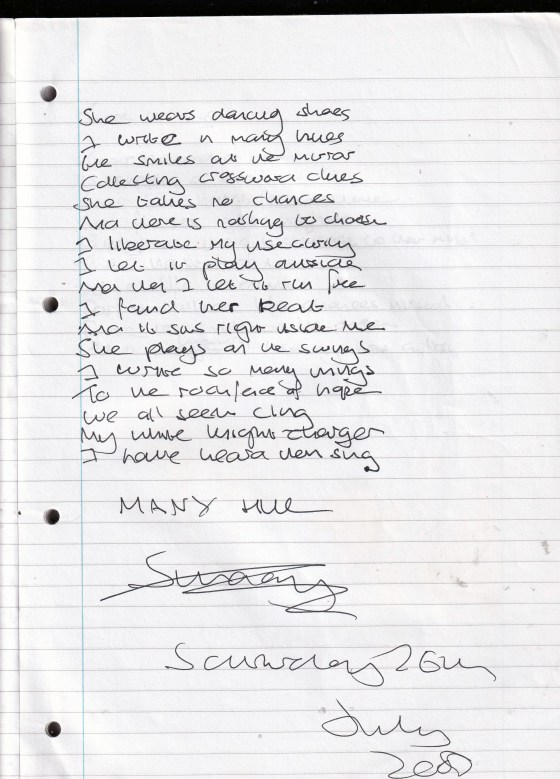 She wears dancing shoes
I write in many hues
We smiles at the mirror
Collecting crossword clues
She takes no chances
And there is nothing to choose
I liberate my
I let it play outside
And then I let it run free
I found her beat
And it sits right inside me
She plays on the swings
I write so many things
To the rockface of hope
We all seem cling
My white knight charger
I have heard them sing
MANY HUE
Sunday
Saturday 26th
July
2008